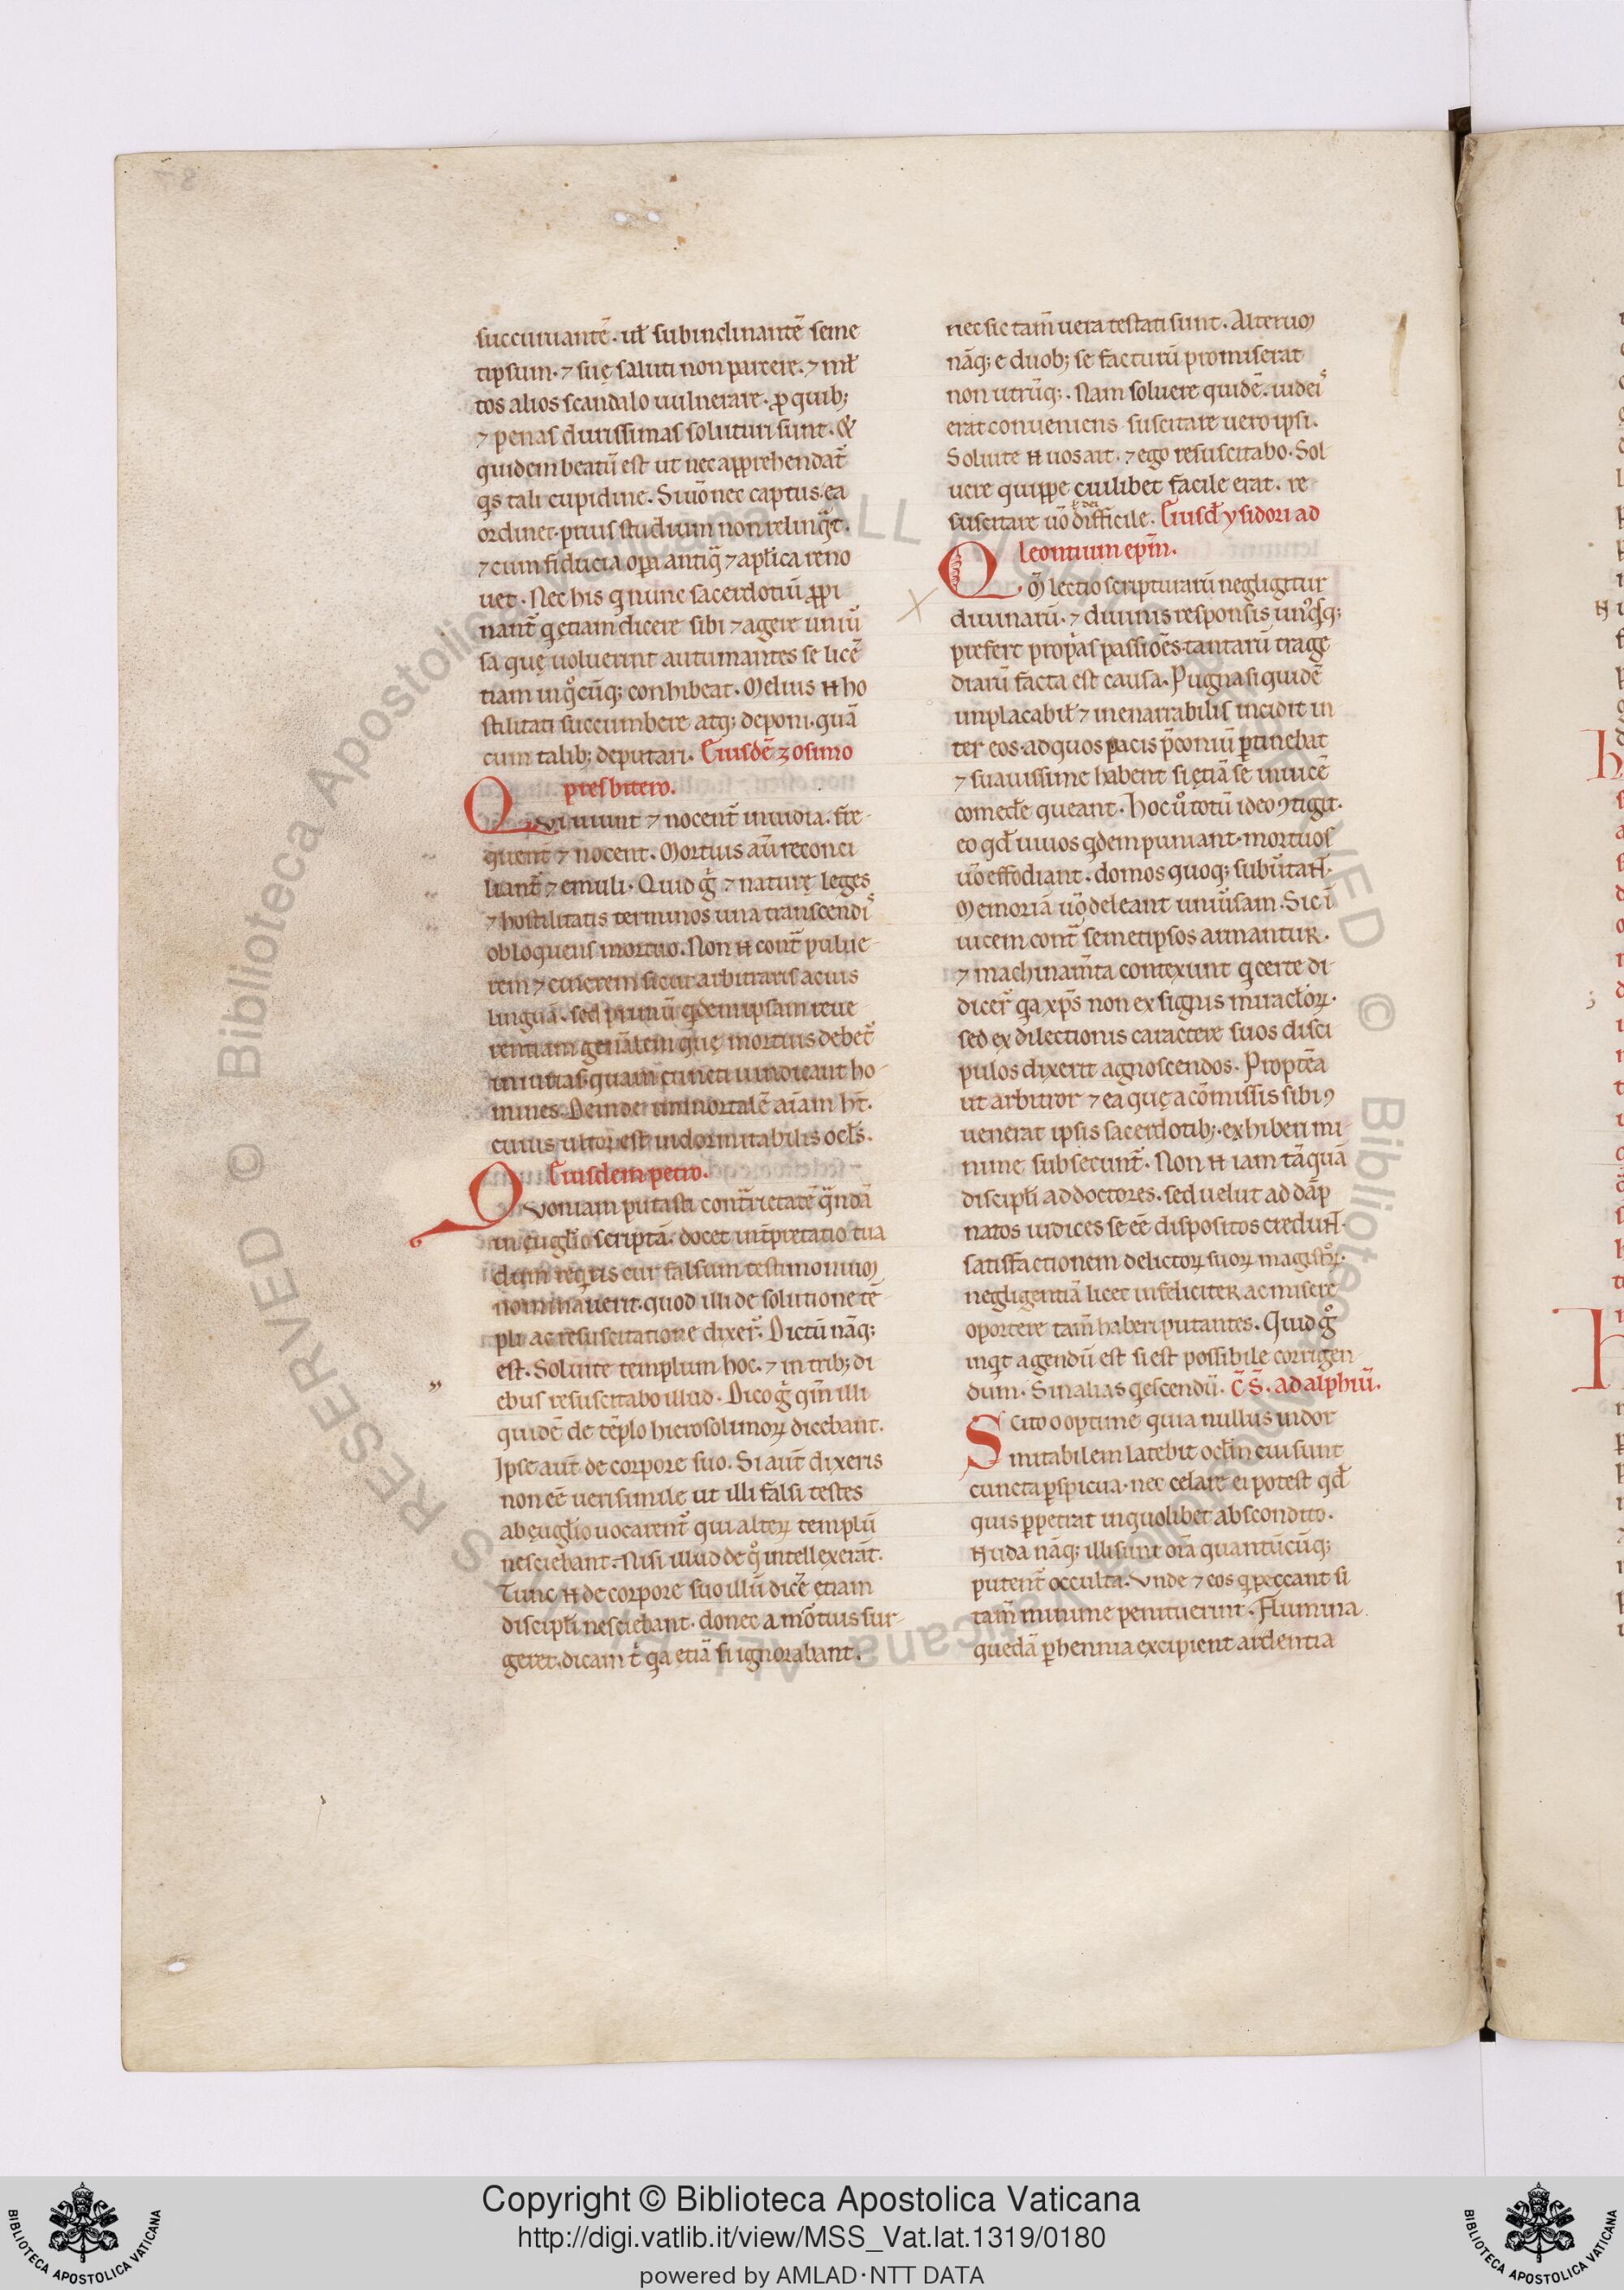 succumante᷉. ul̄ subinclinantē seme
tipsum. ⁊ suę saluti non parcere. ⁊ ml̄
tos alios scandalo uulnerare. ꝓ quib;
⁊ penas durissimas soluturi sunt. &
quidem beatū est ut nec apprehendat̄
q̄s tali cupidine. Si uō nec captus. ea
ordinet. prius studium non relinq̄t.
⁊ cum fiducia oꝑa antiq̄ ⁊ apl̄ica reno
uet. Nec his q̄ nunc sacerdotiū ꝓpi
nant̄ q̄ etiam dicere sibi ⁊ agere uniū
sa quę uoluerint autumantes se licē
tiam inq̊cūq; conhibeat. Melius n̄ ho
stilitati succumbere atq; deponi. quā
cum talib; deputari. Eiusdē zosimo
presbitero.
Qui uiuunt ⁊ nocent̄ inuidia. fre
quent̄ ⁊ nocent. Mortuis aū reconci
liant̄ ⁊ emuli. Quid ḡ ⁊ naturę leges
⁊ hostilitatis terminos una transcendi᷒
obloquens mortuo. Non n̄ cont̄ pulue
rem ⁊ cinerem sicut arbitraris acuis
linguā. sed primū q̄dem ipsam reue
rentiam genālem quę mortuis debet̄
iniurias quam cuncti uindicant ho
mines. Deinde inmortalē aīam hт̄.
cuius ultor est indormitabilis ocl̄s.
Eiusdem petro.
Quoniam putasti cont̄rietatē q̄ndā
in euḡlio scriptā. docet int̄pretatio tua
dum requiris cur falsum testimonium
nominauerit. quod illi de solutione tē
pli ac resuscitatione dixer̄. Dictū nāq;
est. Soluite templum hoc. ⁊ in trib; di
ebus resuscitabo illud. Dico ḡ qm̄ illi
quidē de tēplo hierosolimoꝝ dicebant.
Ipse aūt de corpore suo. Si aūt dixeris
non eē uerisimile ut illi falsi testes
ab euḡlio uocarent̄ qui alteꝝ templū
nesciebant. Nisi illud de q̊ intellexerāt.
Tunc n̄ de corpore suo illū dicē etiam
discipl̄i nesciebant. donec a mōtuis sur
geret. dicam t̄ q̄a etiā si ignorabant.
nec sic tam̄ uera testati sunt. Alterum
nāq; e duob; se facturū promiserat
non utrūq;. Nam soluere quidē. iudei᷒
erat conueniens suscitare uero ipsi.
Soluite n̄ uos ait. ⁊ ego resuscitabo. Sol
uere quippe cuilibet facile erat. re
suscitare uō difficile. Eiusd̄ ysidori ad
leontium epm̄.
Qm̄ lectio scripturarū negligitur
diuinarū. ⁊ diuinis responsis unq̊sq;
prefert propas passiōes. tantarū tragę
diarū facta est causa. Pugna siquidē
inplacabil̄ ⁊ inenarrabilis incidit in
ter eos. ad quos pacis p̄coniū ꝑtinebat
⁊ suauissime habent si etiā se inuicē
comedē queant. Hoc ū totū ideo ꝯtigit.
eo qd̄ uiuos q̄dem puniant. mortuos
uō effodiant. domos quoq; subūtan̄t.
Memoriā uō deleant uniūsam. Sic ī
uicem cont̄ semetipsos armantur.
⁊ machinam̄ta contexunt q̄ certe di
dicer̄ q̄a xp̄s non ex signis miracl̄oꝝ.
sed ex dilectionis caractere suos disci
pulos dixerit agnoscendos. Proptēa
ut arbitror ⁊ ea quę a cōmissis sibi ꝯ
uenerat ipsis sacerdotib;. exhiberi mi
nime subsecunt̄. Non n̄ iam tāquā
discipl̄i ad doctores. sed uelut ad dāp
natos iudices se eē dispositos credun̄t.
satisfactionem delictoꝝ suoꝝ magist̊ꝝ.
negligentiā licet infeliciter ac misere
oportere tam̄ haberi putantes. Quid ḡ
inq̄t agendū est si est possibile corrigen
dum. Sin alias q̄escendū. C̄S̄. ad alphiū.
Scito o optime quia nullus indor
mitabilem latebit ocl̄m cui sunt
cuncta ꝑspicua. nec celare ei potest qd̄
quis ꝑpetrat in quolibet abscondito.
Nuda nāq; illi sunt om̄a quantūcūq;
putent̄ occulta. Vnde ⁊ eos q̄ peccant si
tam̄ minime penituerint. Flumina
quedā ꝑhennia excipient ardentia
Copyright © Biblioteca Apostolica Vaticana
http://digi.vatlib.it/view/MSS_Vat.lat.1319/0180
powered by AMLAD·NTT DATA